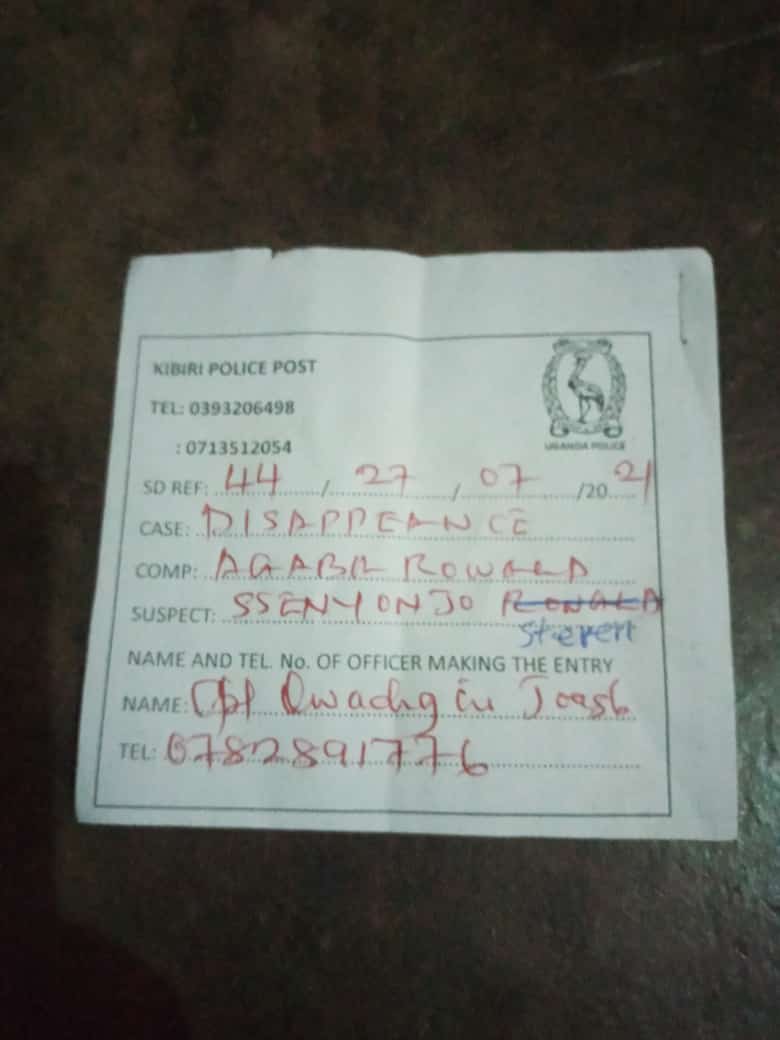 KIBIRI POLICE POST
TEL: 0393206498
: 0713512054
UGANDA POLICE
SD REF: 44 / 27 / 07 /20 21
CASE: DISAPPEANCE
COMP: AGABA RONALD
SUSPECT: SSENYONJO RONALD
Steven
NAME AND TEL. No. OF OFFICER MAKING THE ENTRY
NAME: Cpl
TEL: 0782891776